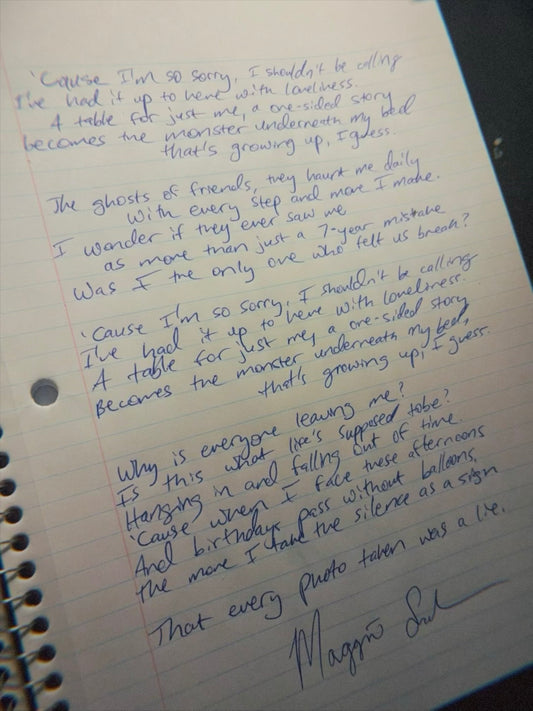 'Cause I'm so sorry, I shouldn't be calling
I've had it up to here with loneliness.
A table for just me, a one-sided story
becomes the monster underneath my bed
that's growing up, I guess.
The ghosts of friends, they haunt me daily
with every step and move I make.
I wonder if they ever saw me
as more than just a 7-year mistake
Was I the only one who felt us break?
'Cause I'm so sorry, I shouldn't be calling
I've had it up to here with loneliness.
A table for just me, a one-sided story
Becomes the monster underneath my bed,
that's growing up, I guess.
Why is everyone leaving me?
Is this what life's supposed to be?
Hanging in and falling out of time.
'Cause when I face these afternoons
And birthdays pass without balloons,
the more I take the silence as a sign
That every photo taken was a lie.
Maggie